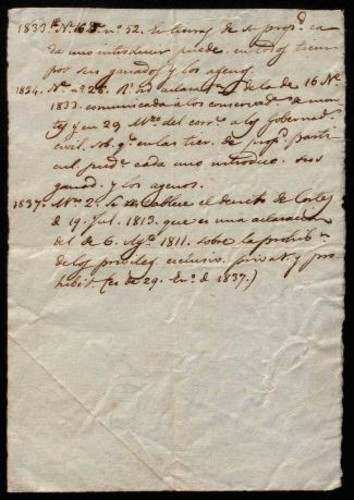 1833. Nº 16. nº 52. En tierras de su prop.d ca
da uno introducir puede, en todos tiem
pos sus ganados y los agenos.
1834. Nº 28. Rl. ord. aclarat. de la de 16 Nre
1833. comunicada a los conservad. de mon
tes y en 29 Mzo. del corr.te a los Gobernad.
civil. sob. q.e en las tier. de prop.d parti
cul. pued.n cada uno introducir sus
ganad. y los agenos.
1837. Nº 2. Se restablece el decreto de Cortes
de 19. Jul. 1813. que es una aclaracion
del de 6. Ag.to 1811. sobre la prohib.n
de los privileg. exclusiv. privat. y pro
hibit. (es de 29. En.o d 1837.)